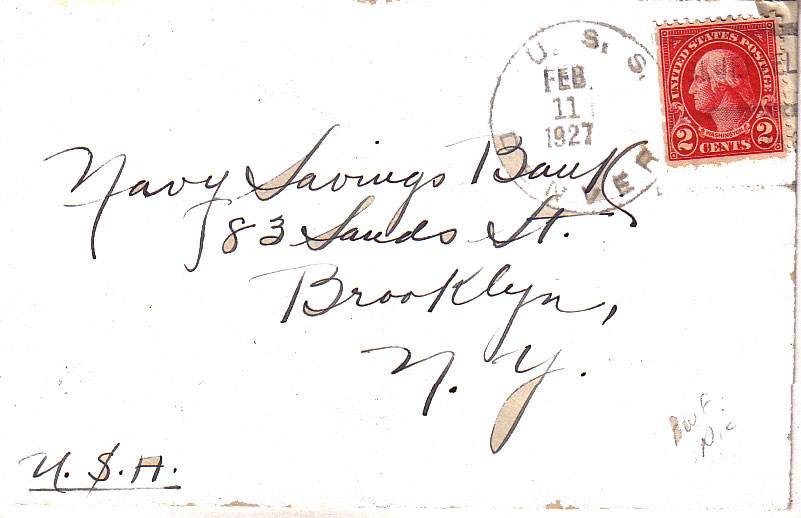 U. S. S.
FEB.
11
1927
UNITED STATES POSTAGE
WASHINGTON
2 CENTS 2
Navy Savings Bank
83 Sands St.
Brooklyn,
N. Y.
U. S. A.